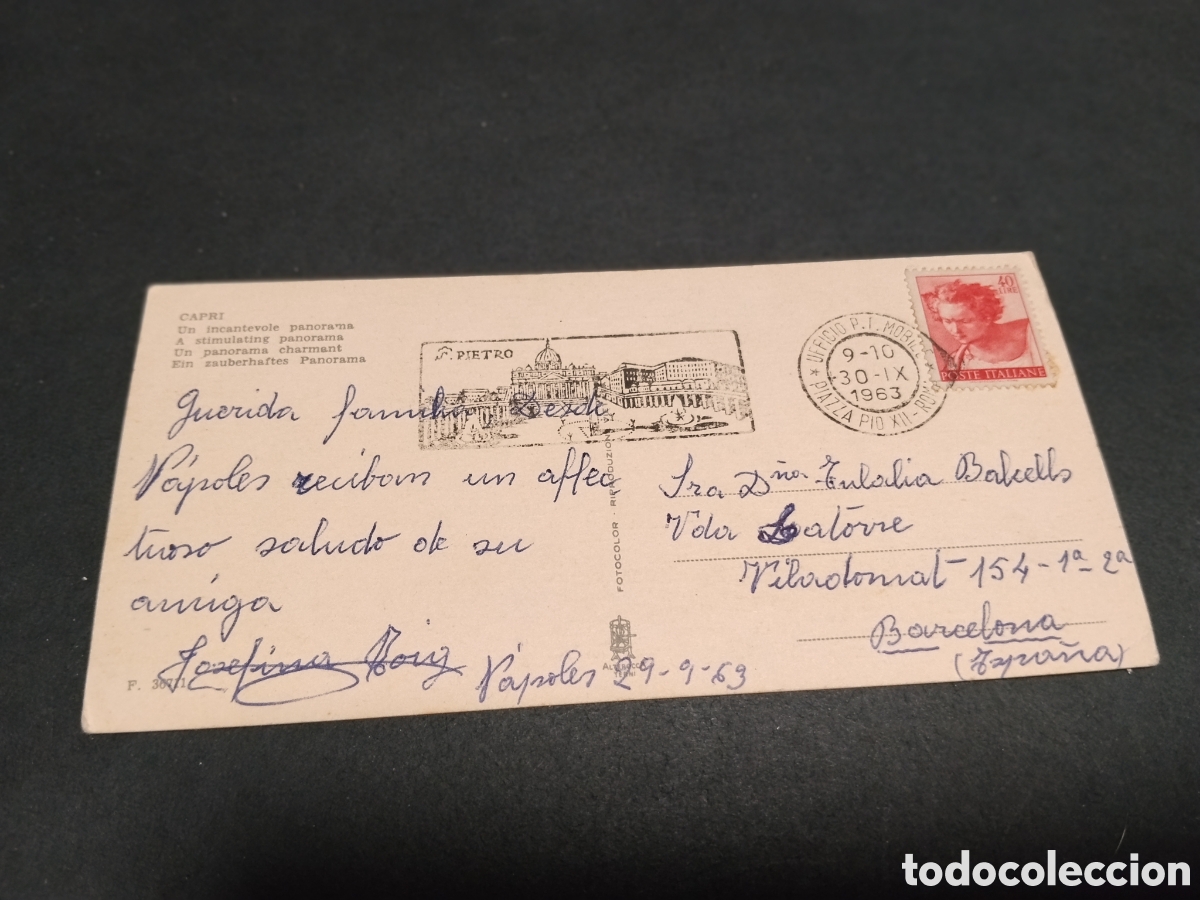 CAPRI
Un incantevole panorama
A stimulating panorama
Un panorama charmant
Ein zauberhaftes Panorama
S. PIETRO
UFFICIO P.T. MOBILE
9-10
30-IX
1963
PIAZZA PIO XII-ROMA
40
LIRE
POSTE ITALIANE
Querida familia Desde
Nápoles reciban un affec
tuoso saludo de su
amiga
Josefina Roig
Nápoles 29-9-63
Sra Dña Eulalia Balcells
Vda Latorre
Viladomat 154-1ª-2ª
Barcelona
(España)
FOTOCOLOR - RIPRODUZIONE
TERNI
todocoleccion